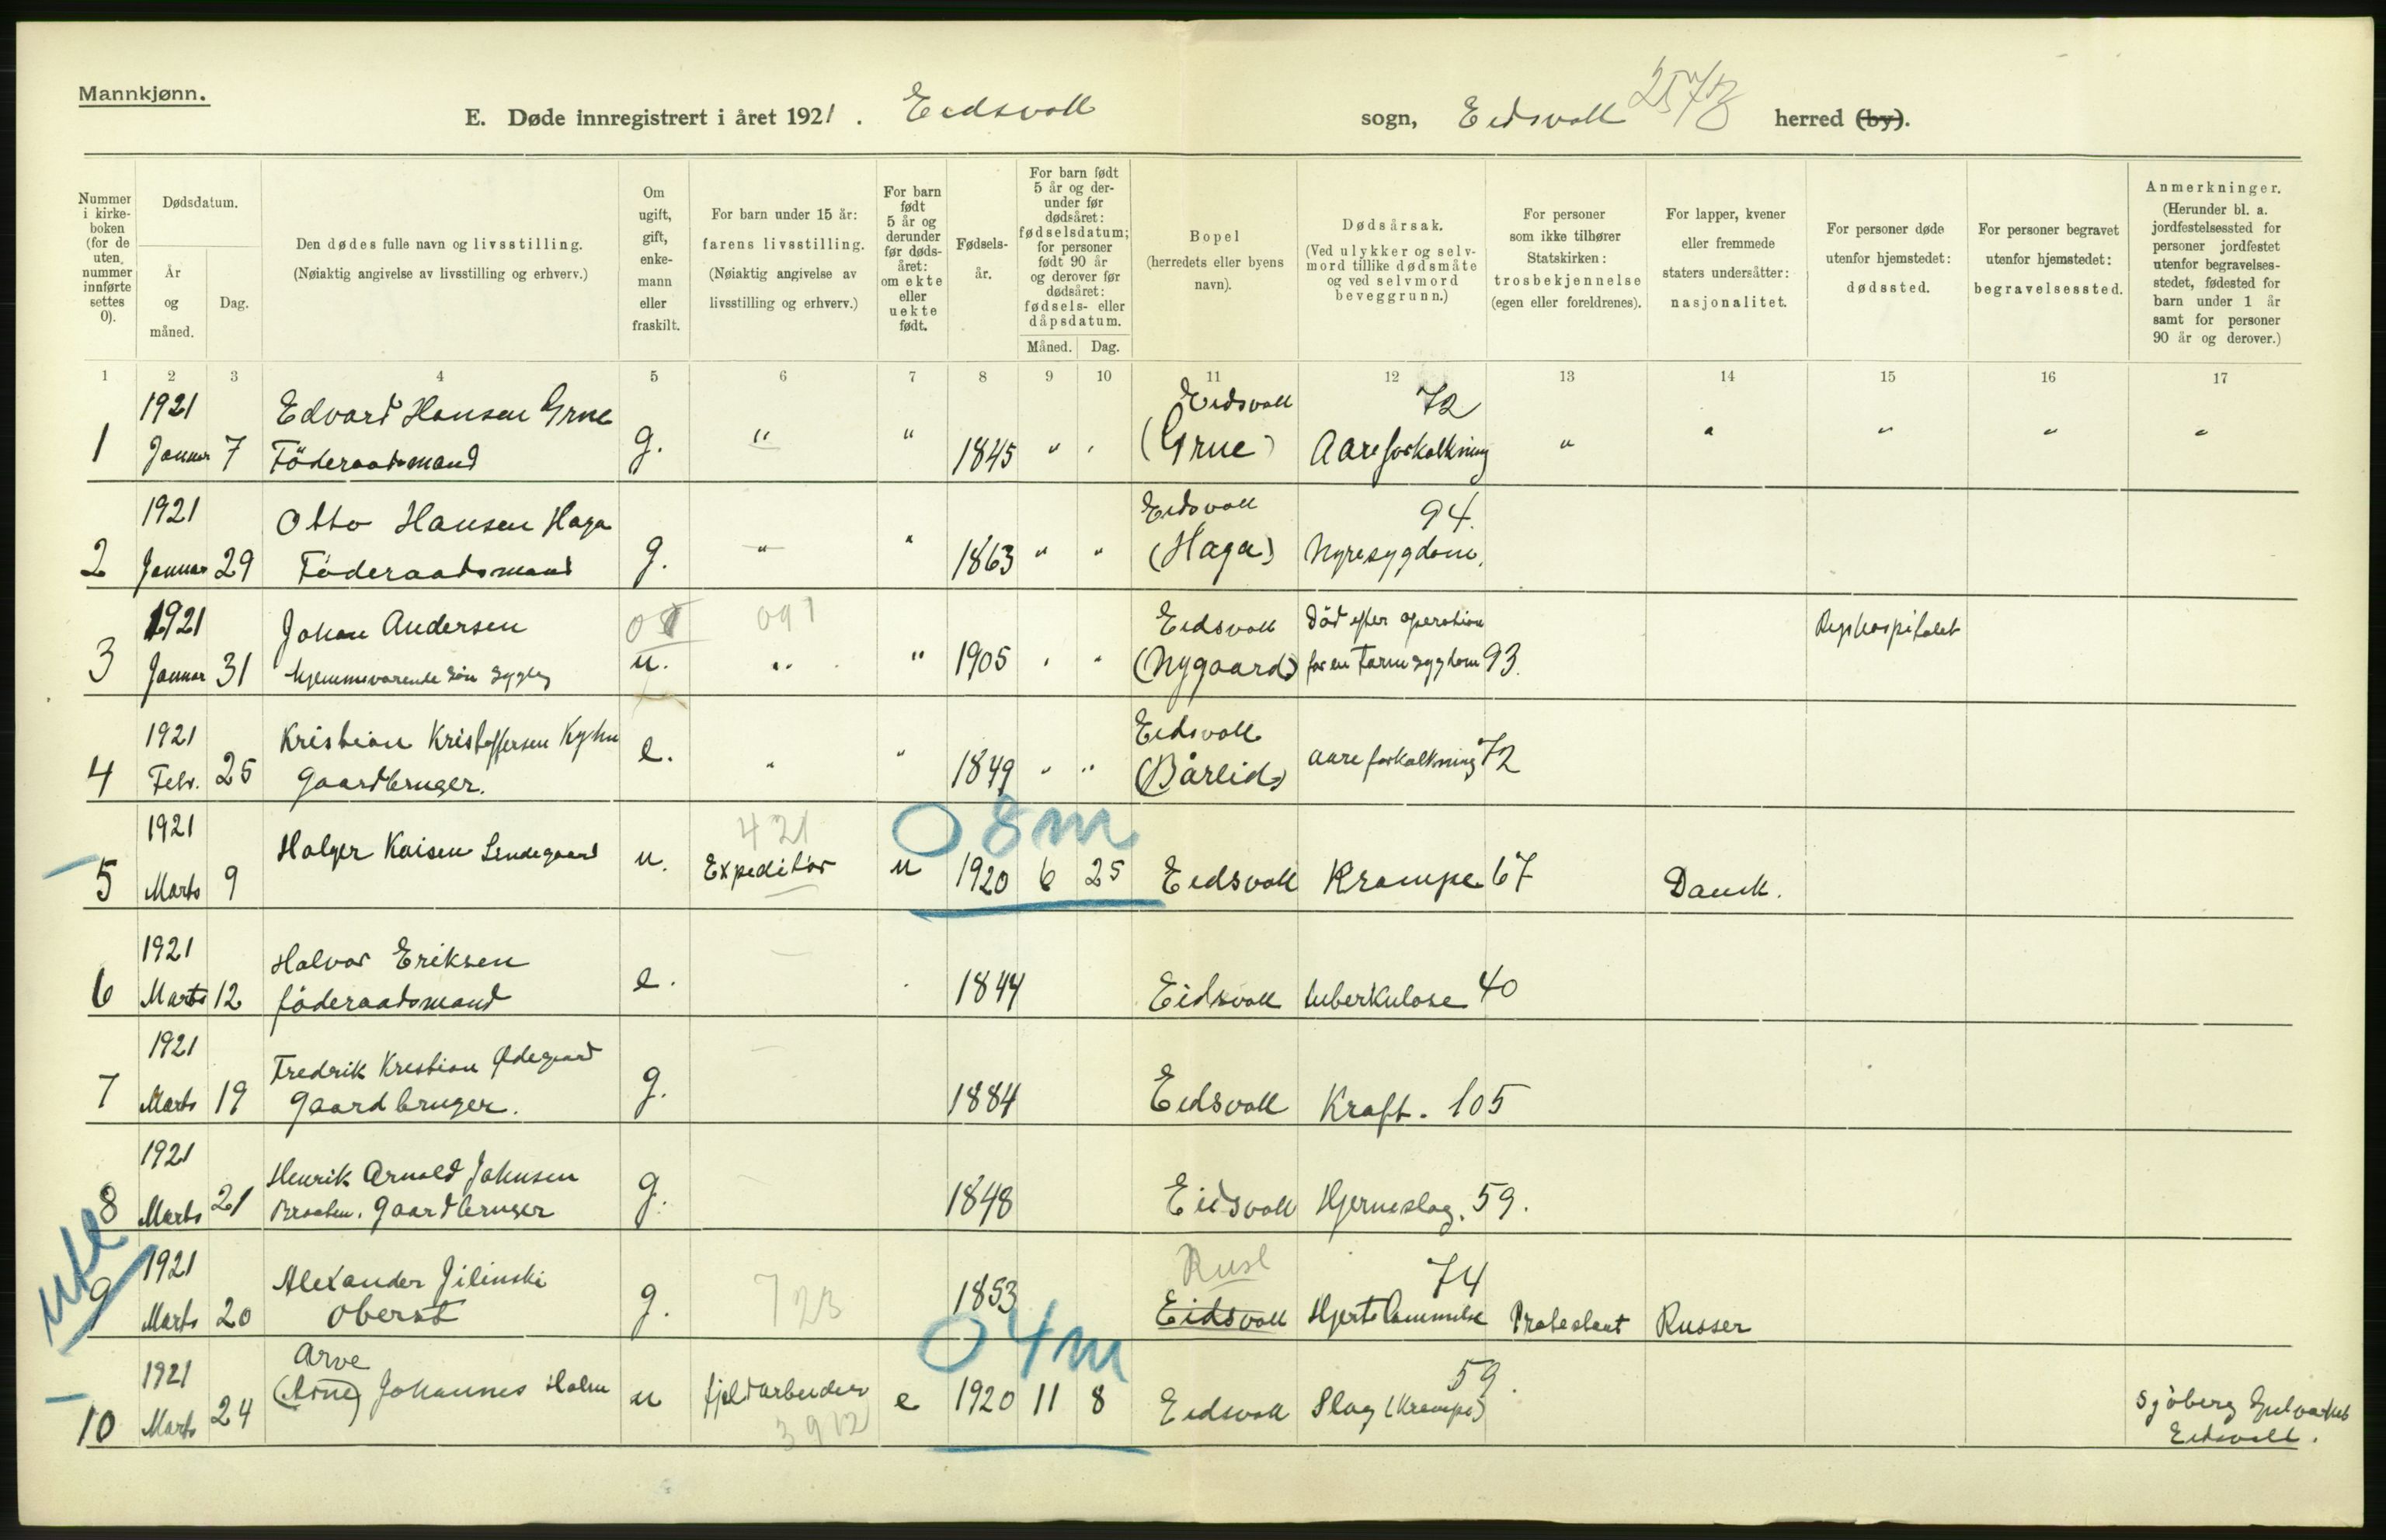 Mannkjønn.
E. Døde innregistrert i året 1921. Eidsvoll sogn, Eidsvoll herred (by).
Nummer i kirke-boken (for de uten nummer innførte settes 0).
Dødsdatum.
År og måned.
Dag.
Den dødes fulle navn og livsstilling.
(Nøiaktig angivelse av livsstilling og erhverv.)
Om ugift, gift, enke-mann eller fraskilt.
For barn under 15 år: farens livsstilling. (Nøiaktig angivelse av livsstilling og erhverv.)
For barn født 5 år og derunder før døds-året: om ekte eller uekte født.
Fødsels-år.
For barn født 5 år og der-under før dødsåret: fødselsdatum; for personer født 90 år og derover før dødsåret: fødsels- eller dåpsdatum.
Måned. Dag.
Bopel (herredets eller byens navn).
Dødsårsak. (Ved ulykker og selv-mord tillike dødsmåte og ved selvmord beveggrunn.)
For personer som ikke tilhører Statskirken: trosbekjennelse (egen eller foreldrenes).
For lapper, kvener eller fremmede staters undersåtter: nasjonalitet.
For personer døde utenfor hjemstedet: dødssted.
For personer begravet utenfor hjemstedet: begravelsessted.
Anmerkninger. (Herunder bl. a. jordfestelsessted for personer jordfestet utenfor begravelses-stedet, fødested for barn under 1 år samt for personer 90 år og derover.)
1 2 3 4 5 6 7 8 9 10 11 12 13 14 15 16 17
1921 Edvard Hansen Grue Eidsvoll 72
1 Januar 7 Föderaadsmand g. " " 1845 " " (Grue) Aareforkalkning " " " " "
1921 Otto Hansen Haga Eidsvoll 94.
2 Januar 29 Föderaadsmand g. " " 1863 " " (Haga) Nyresygdom.
1921 Johan Andersen 091 Eidsvoll Död efter operation Rigshospitalet
3 Januar 31 hjemmeværende sön u. " " 1905 " " (Nygaard) for en Tarmsygdom 93.
1921 Kristian Kristoffersen Eidsvoll
4 Febr. 25 Gaardbruger. e. " " 1849 " " (Bårlid) aareforkalkning 72
1921 421 08m
5 Marts 9 Holger Kaisen Lindegaard u. Expeditör u 1920 6 25 Eidsvoll Krampe 67 Dansk.
1921 Halvor Eriksen
6 Marts 12 föderaadsmand e. 1844 Eidsvoll tuberkulose 40
1921 Fredrik Kristian Ödegaard
7 Marts 19 Gaardbruger. g. 1884 Eidsvoll Kraft. 105
1921 Henrik Arnold Johnsen
8 Marts 21 Braaten. Gaardbruger g. 1848 Eidsvoll Hjerneslag. 59.
1921 Alexander Jilinski Rusl 74
9 Marts 20 Oberst g. 723 1853 Eidsvoll Hjertelammelse Protestant Russer
Arve 04m 59.
1921 (Arne) Johannes Holm
10 Marts 24 u fjeldarbeider e 1920 11 8 Eidsvoll Slag (Krampe) Sjöberg
3912 Eidsvoll.